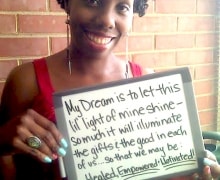 My Dream is to let this
lil' light of mine shine -
so much it will illuminate
the gifts & the good in each
of us... so that we may be:
Healed, Empowered & United!